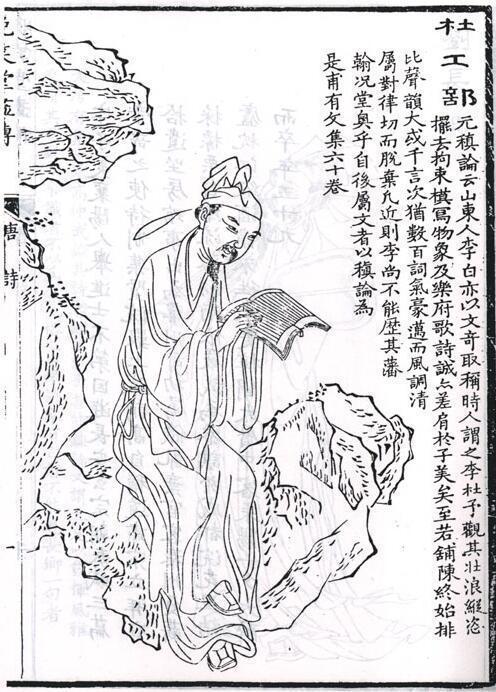 杜工部
元稹論云山東人李白亦以文奇取稱時人謂之李杜予觀其壯浪縱恣
擺去拘束模冩物象及樂府歌詩誠亦差肩於子美矣至若鋪陳終始排
比聲韻大或千言次猶數百詞氣豪邁而風調清
屬對律切而脫棄凡近則李尚不能歷其藩
翰况堂奧乎自後屬文者以稹論為
是甫有文集六十卷
笑堂畫傳
唐詩